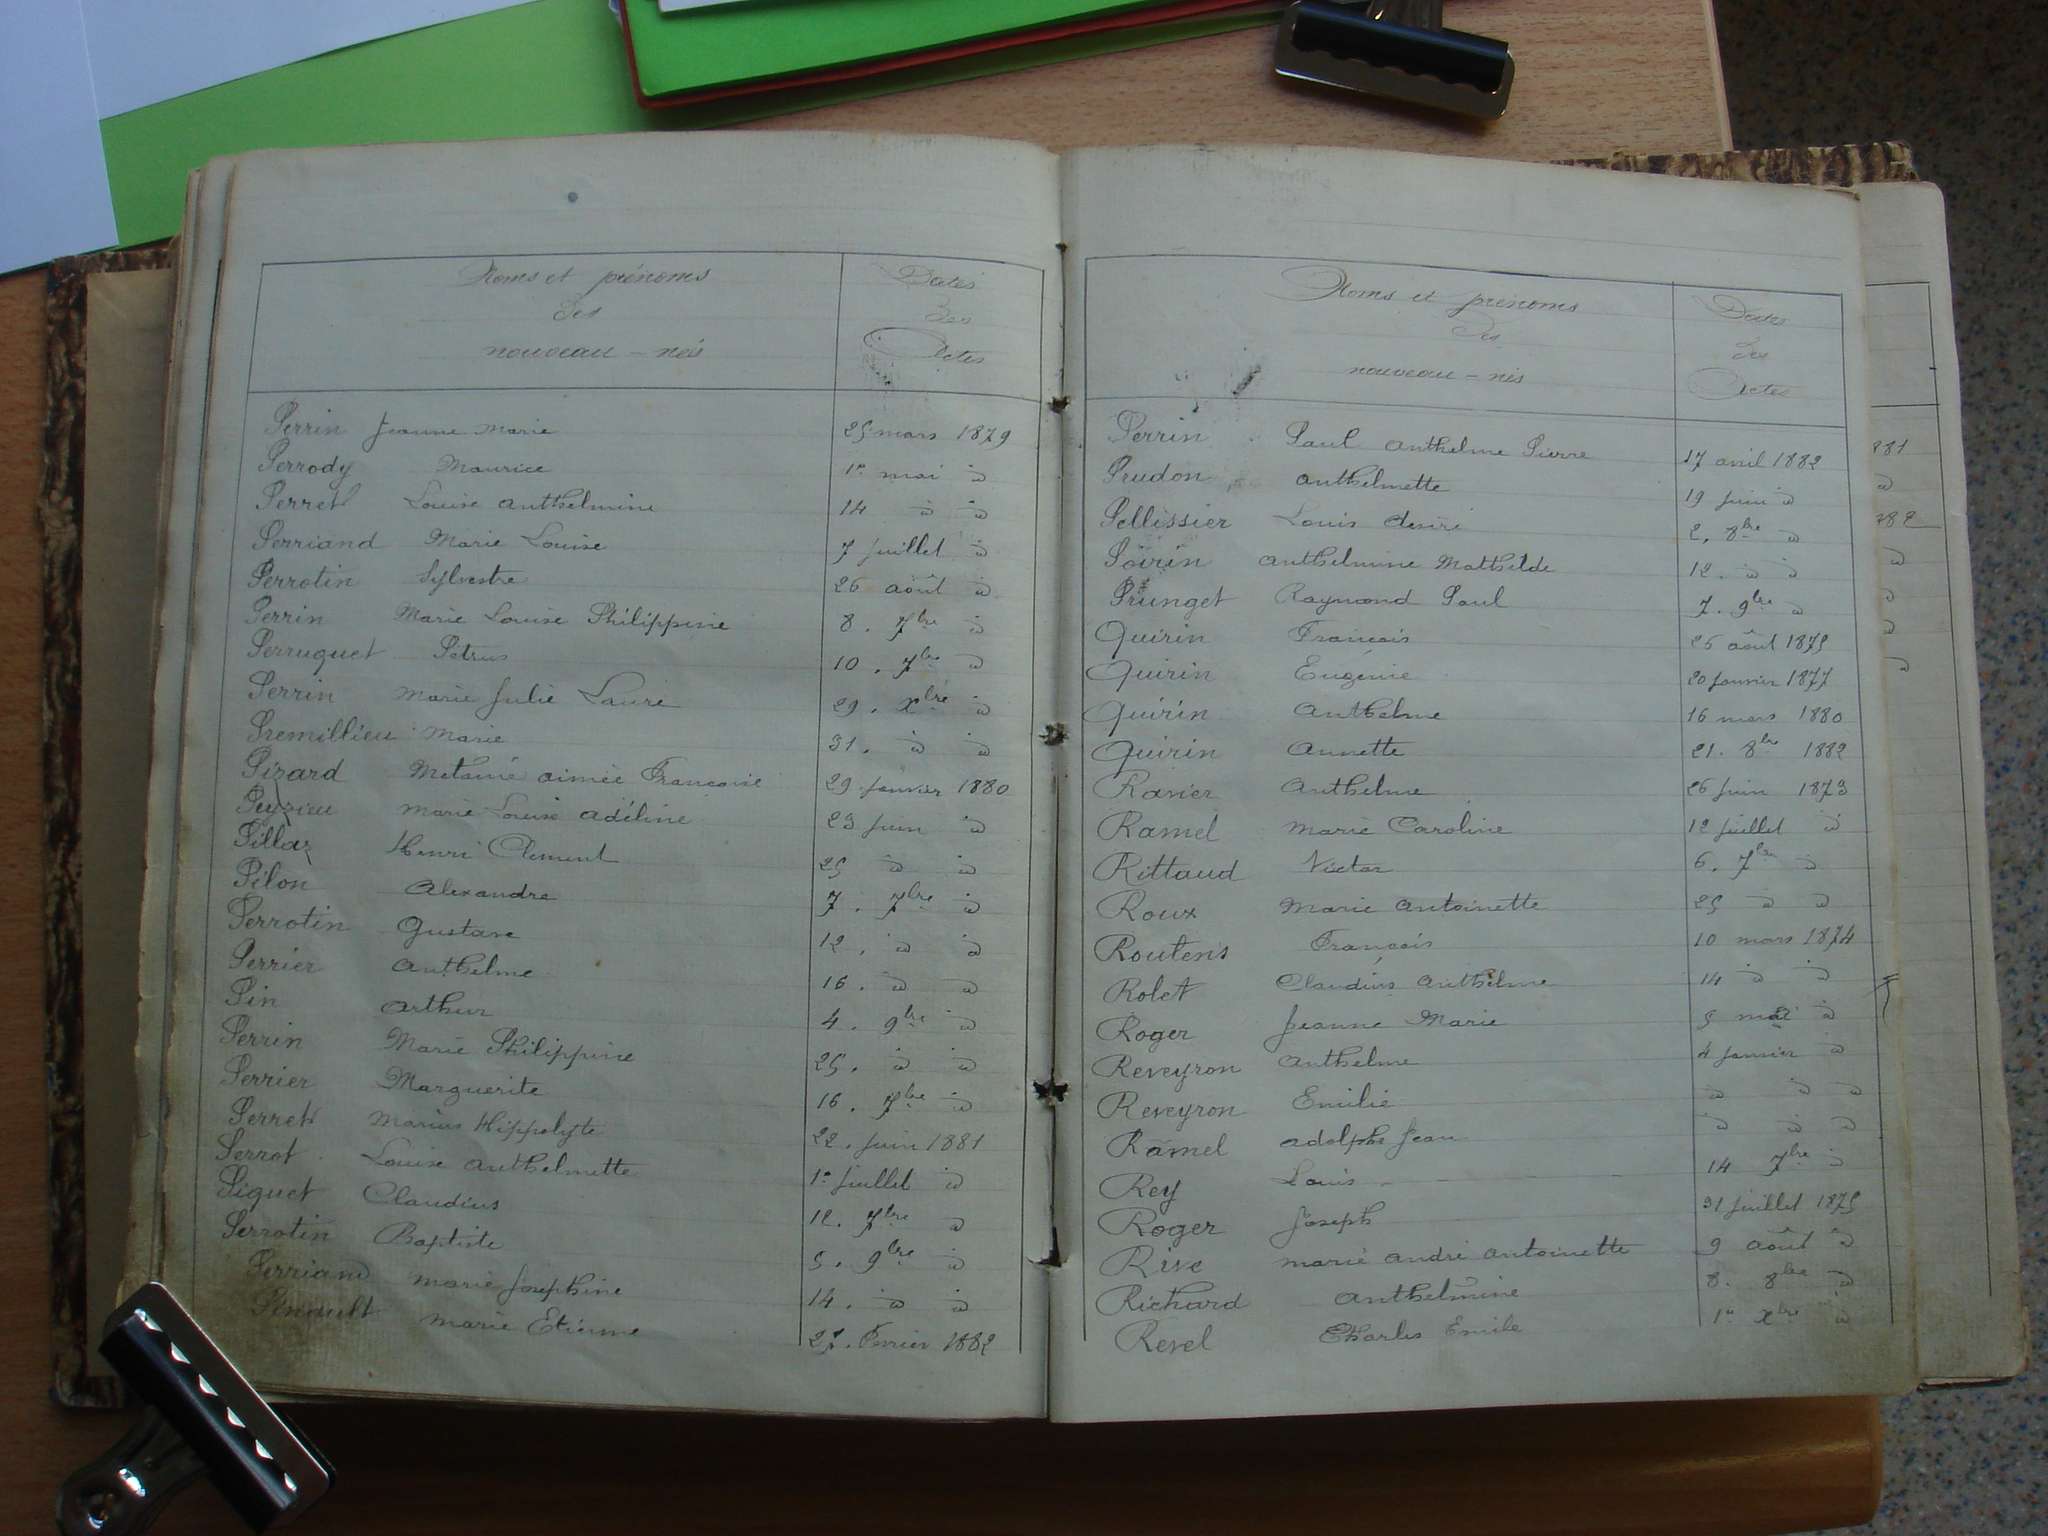 Noms et prénoms Dates
des des
nouveau-nés Actes
Perrin Jeanne Marie 25 mars 1879
Perrody Maurice 1er mai d
Perret Louise Anthelmine 14 d d
Perriand Marie Louise 7 juillet d
Perrotin Sylvestre 26 août d
Perrin Marie Louise Philippine 8. 7bre d
Perruquet Pétrus 10. 7bre d
Perrin Marie Julie Laure 29. Xbre d
Premillieu Marie 31. d d
Pizard Mélanie aimée Françoise 29 janvier 1880
Peyzieu Marie Louise Adéline 23 juin d
Pillaz Henri Clement 25 d d
Pilon Alexandre 7. 7bre d
Perrotin Gustave 12. d d
Perrier Anthelme 16. d d
Pin Arthur 4. 9bre d
Perrin Marie Philippine 25. d d
Perrier Marguerite 16. 7bre d
Perret Marius Hippolyte 22. juin 1881
Perrot Louise Anthelmette 1er juillet d
Piguet Claudius 12. 7bre d
Perrotin Baptiste 5. 9bre d
Perriand Marie Joséphine 14. d d
Penault Marie Etienne 27. Février 1882
Noms et prénoms Dates
des des
nouveau-nés Actes
Perrin Paul Anthelme Pierre 17 avril 1882
Prudon Anthelmette 19 juin d
Pellissier Louis désiré 2. 8bre d
Poirin Anthelmine Mathilde 12. d d
Prunget Raymond Paul 7. 9bre d
Quirin François 26 août 1875
Quirin Eugénie 20 janvier 1877
Quirin Anthelme 16 mars 1880
Quirin Annette 21. 8bre 1882
Ravier Anthelme 26 juin 1873
Ramel Marie Caroline 12 juillet d
Rittaud Victor 6. 7bre d
Roux Marie Antoinette 25 d d
Routens François 10 mars 1874
Rolet Claudius Anthelme 14 d d
Roger Jeanne Marie 5 mai d
Reveyron Anthelme 4 janvier d
Reveyron Emilie d d d
Ramel Adolphe Jean d d d
Rey Louis 14 7bre d
Roger Joseph 31 juillet 1875
Rive Marie André Antoinette 9 août d
Richard Anthelmine 8. 8bre d
Revel Charles Emile 1er Xbre d
881
d
882
d
d
d
d